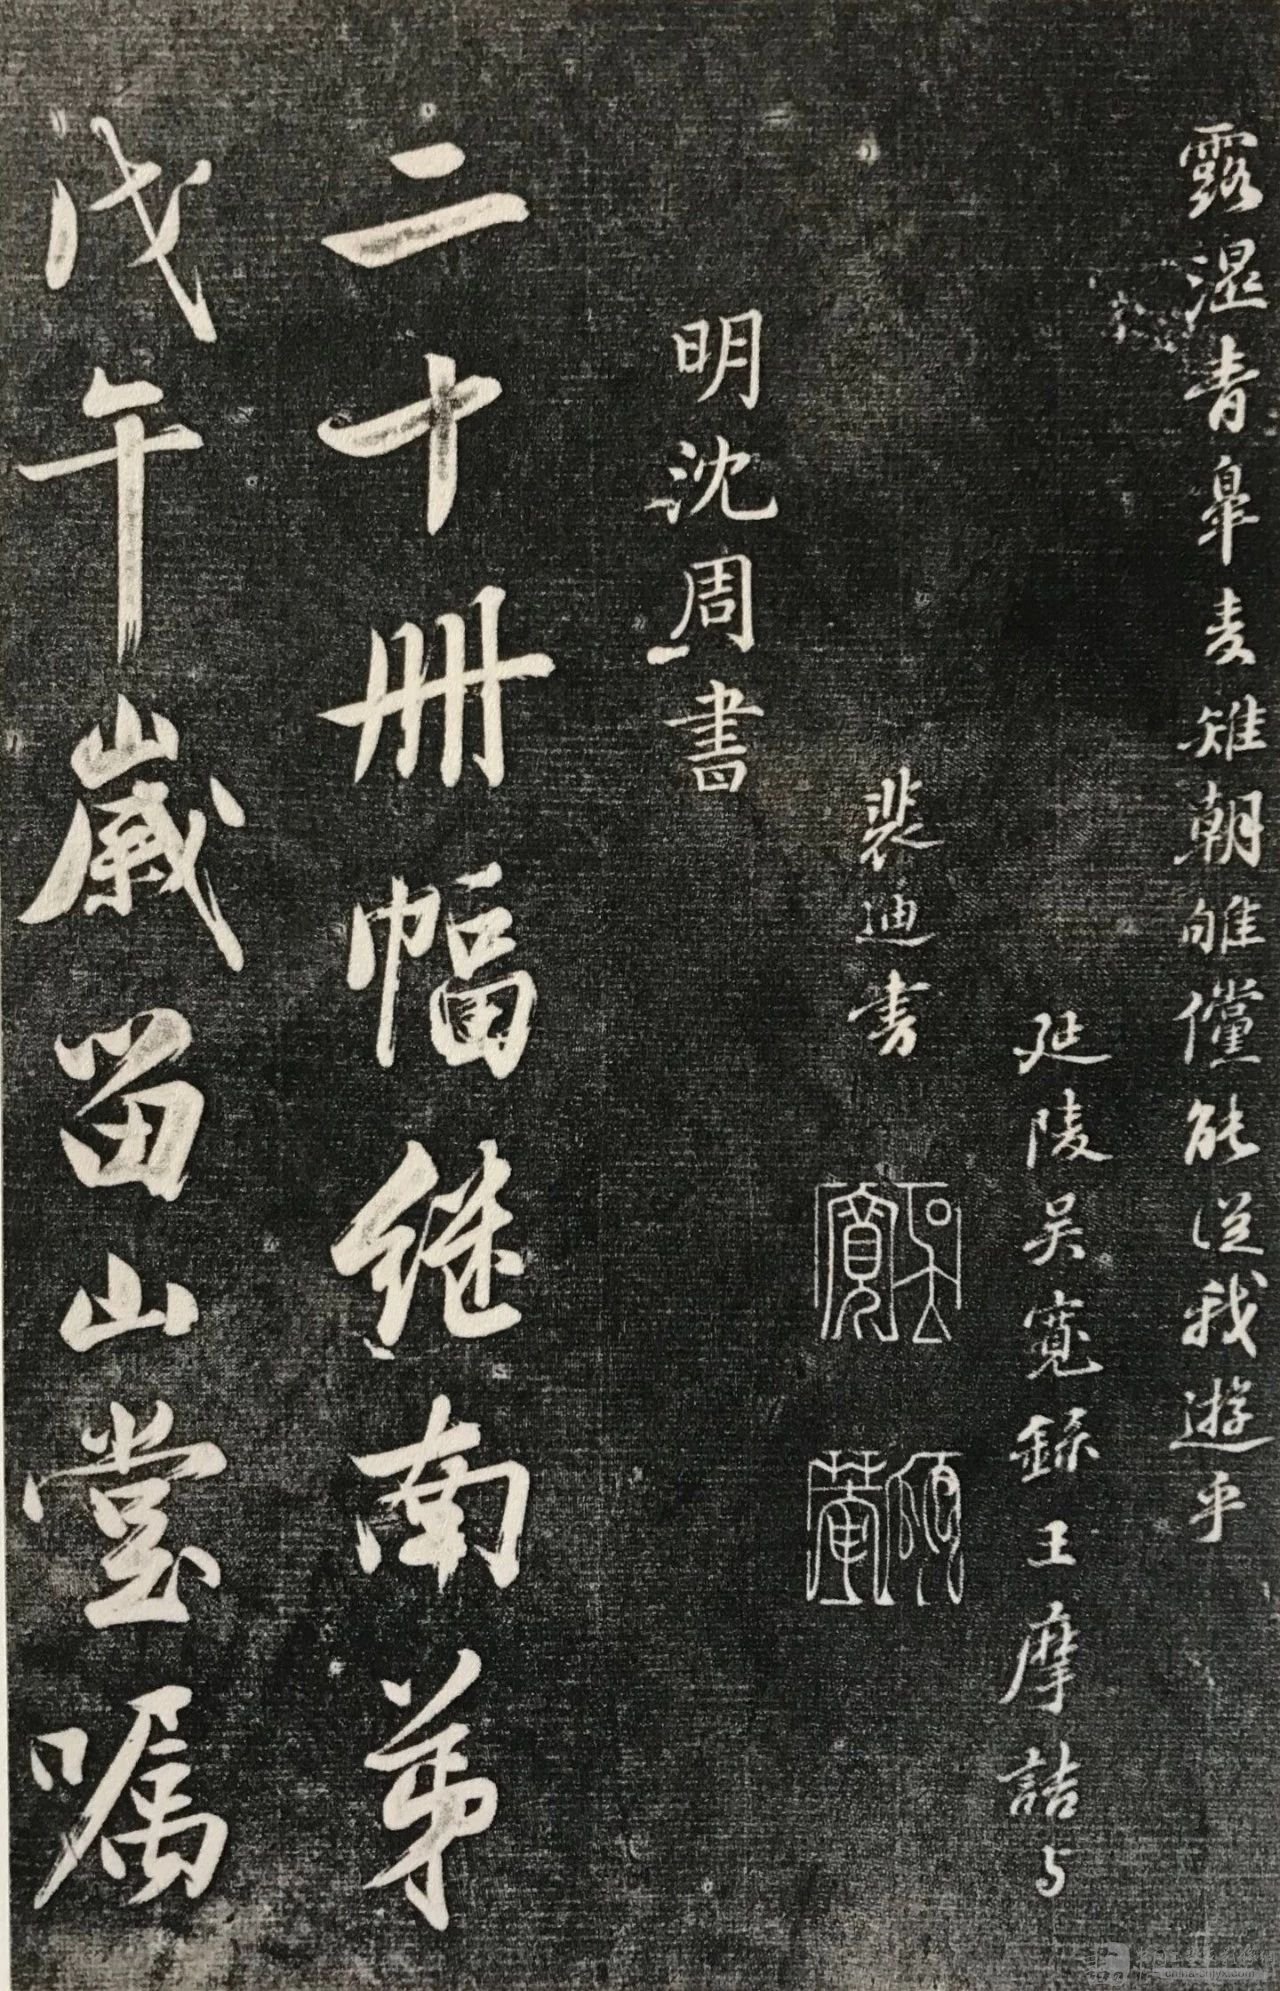 露湿青皋麦雉朝雊儻能従我遊乎
延陵吴寬錄王摩詰与
裴迪书
原博
明沈周書
二十册幅继南弟
戊午嵗留山堂嘱